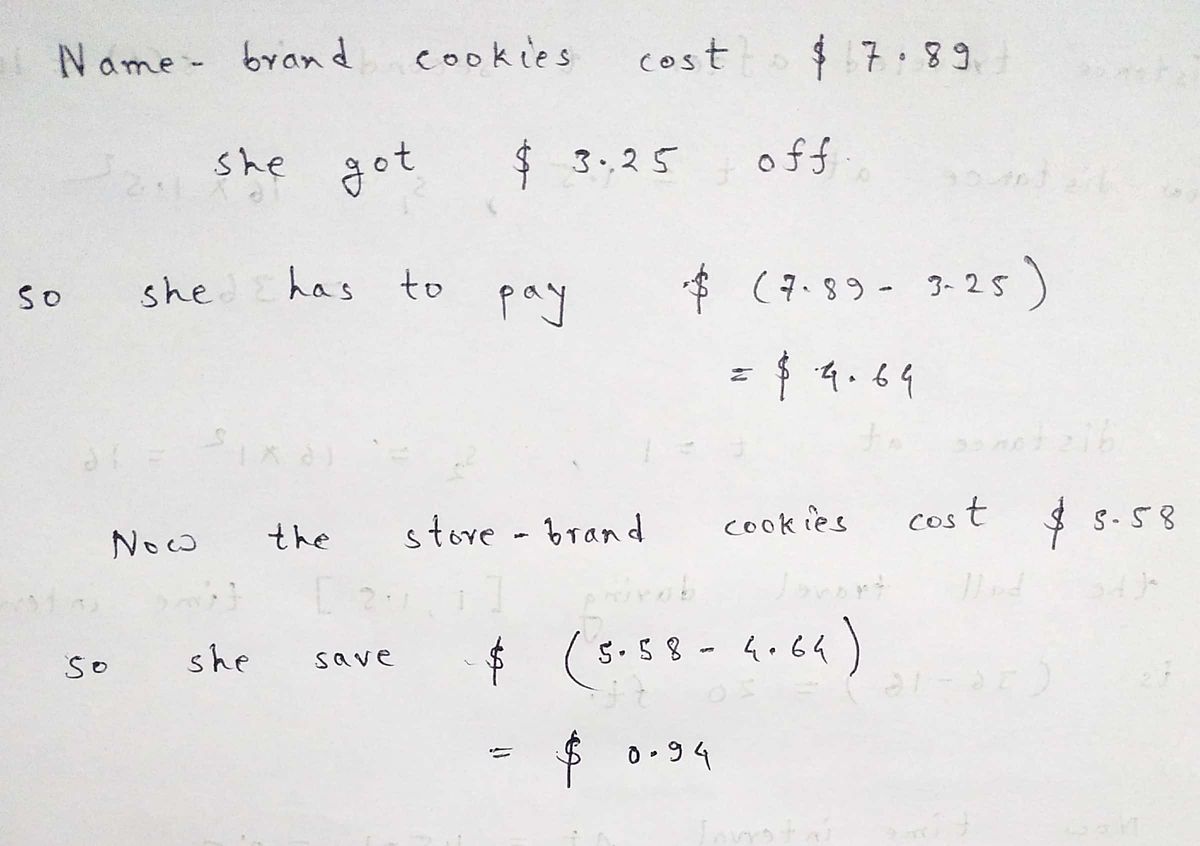 Name - brand cookies cost $ 7.89
she got $ 3.25 off.
so she has to pay $ (7.89 - 3.25)
= $ 4.64
Now the store - brand cookies cost $ 5.58
so she save $ (5.58 - 4.64)
= $ 0.94